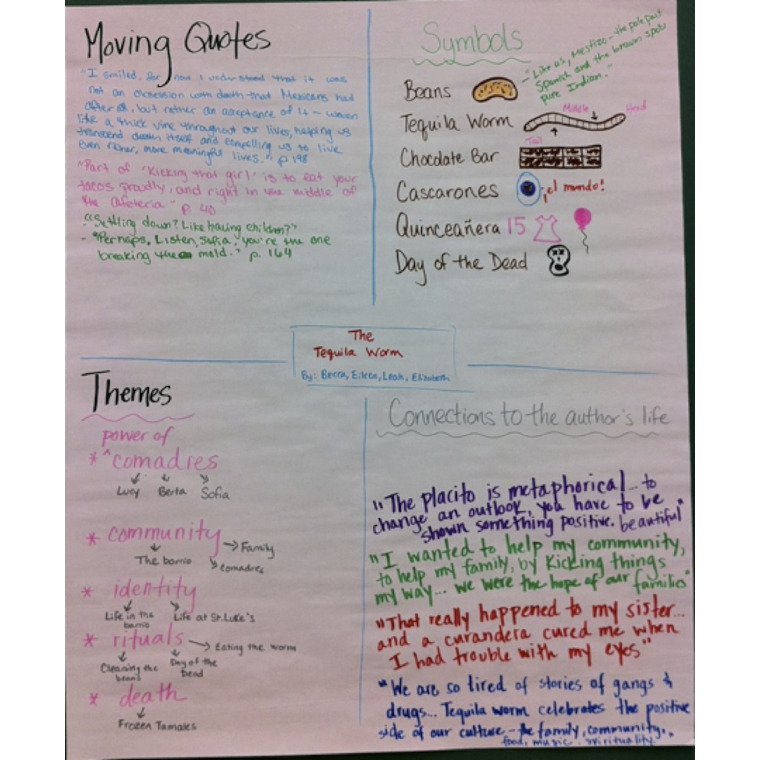 Moving Quotes
"I smiled, for now I understood that it was
not an obsession with death that Mexicans had
after all, but rather an acceptance of it – woven
like a thick vine throughout our lives, helping us
transcend death itself and compelling us to live
even richer, more meaningful lives." p. 198
"Part of 'Kicking that girl' is to eat your
tacos proudly, and right in the middle of
the cafeteria." p. 40
"Settling down? Like having children?"
- "Perhaps. Listen, Sofia, you're the one
breaking the mold." p. 164
Symbols
Beans
-"Like us, Mestizo - the pale part
Spanish and the brown spots
pure Indian."
Tequila Worm
Tail
Middle
Head
Chocolate Bar
Cascarones
¡el mundo!
Quinceañera 15
Day of the Dead
The
Tequila Worm
By: Becca, Eileen, Leah, Elizabeth
Themes
power of
* ^ comadres
Lucy Berta Sofia
* community
The barrio
Family
comadres
* identity
Life in the
barrio
Life at St. Luke's
* rituals
Eating the worm
Cleaning the
beans
Day of the
Dead
* death
Frozen Tamales
Connections to the author's life
"The placito is metaphorical... to
change an outlook, you have to be
shown something positive, beautiful"
"I wanted to help my community,
to help my family, by kicking things
my way... we were the hope of our families"
"That really happened to my sister...
and a curandera cured me when
I had trouble with my eyes"
"We are so tired of stories of gangs &
drugs... Tequila worm celebrates the positive
side of our culture - the family, community,
food, music, spirituality."